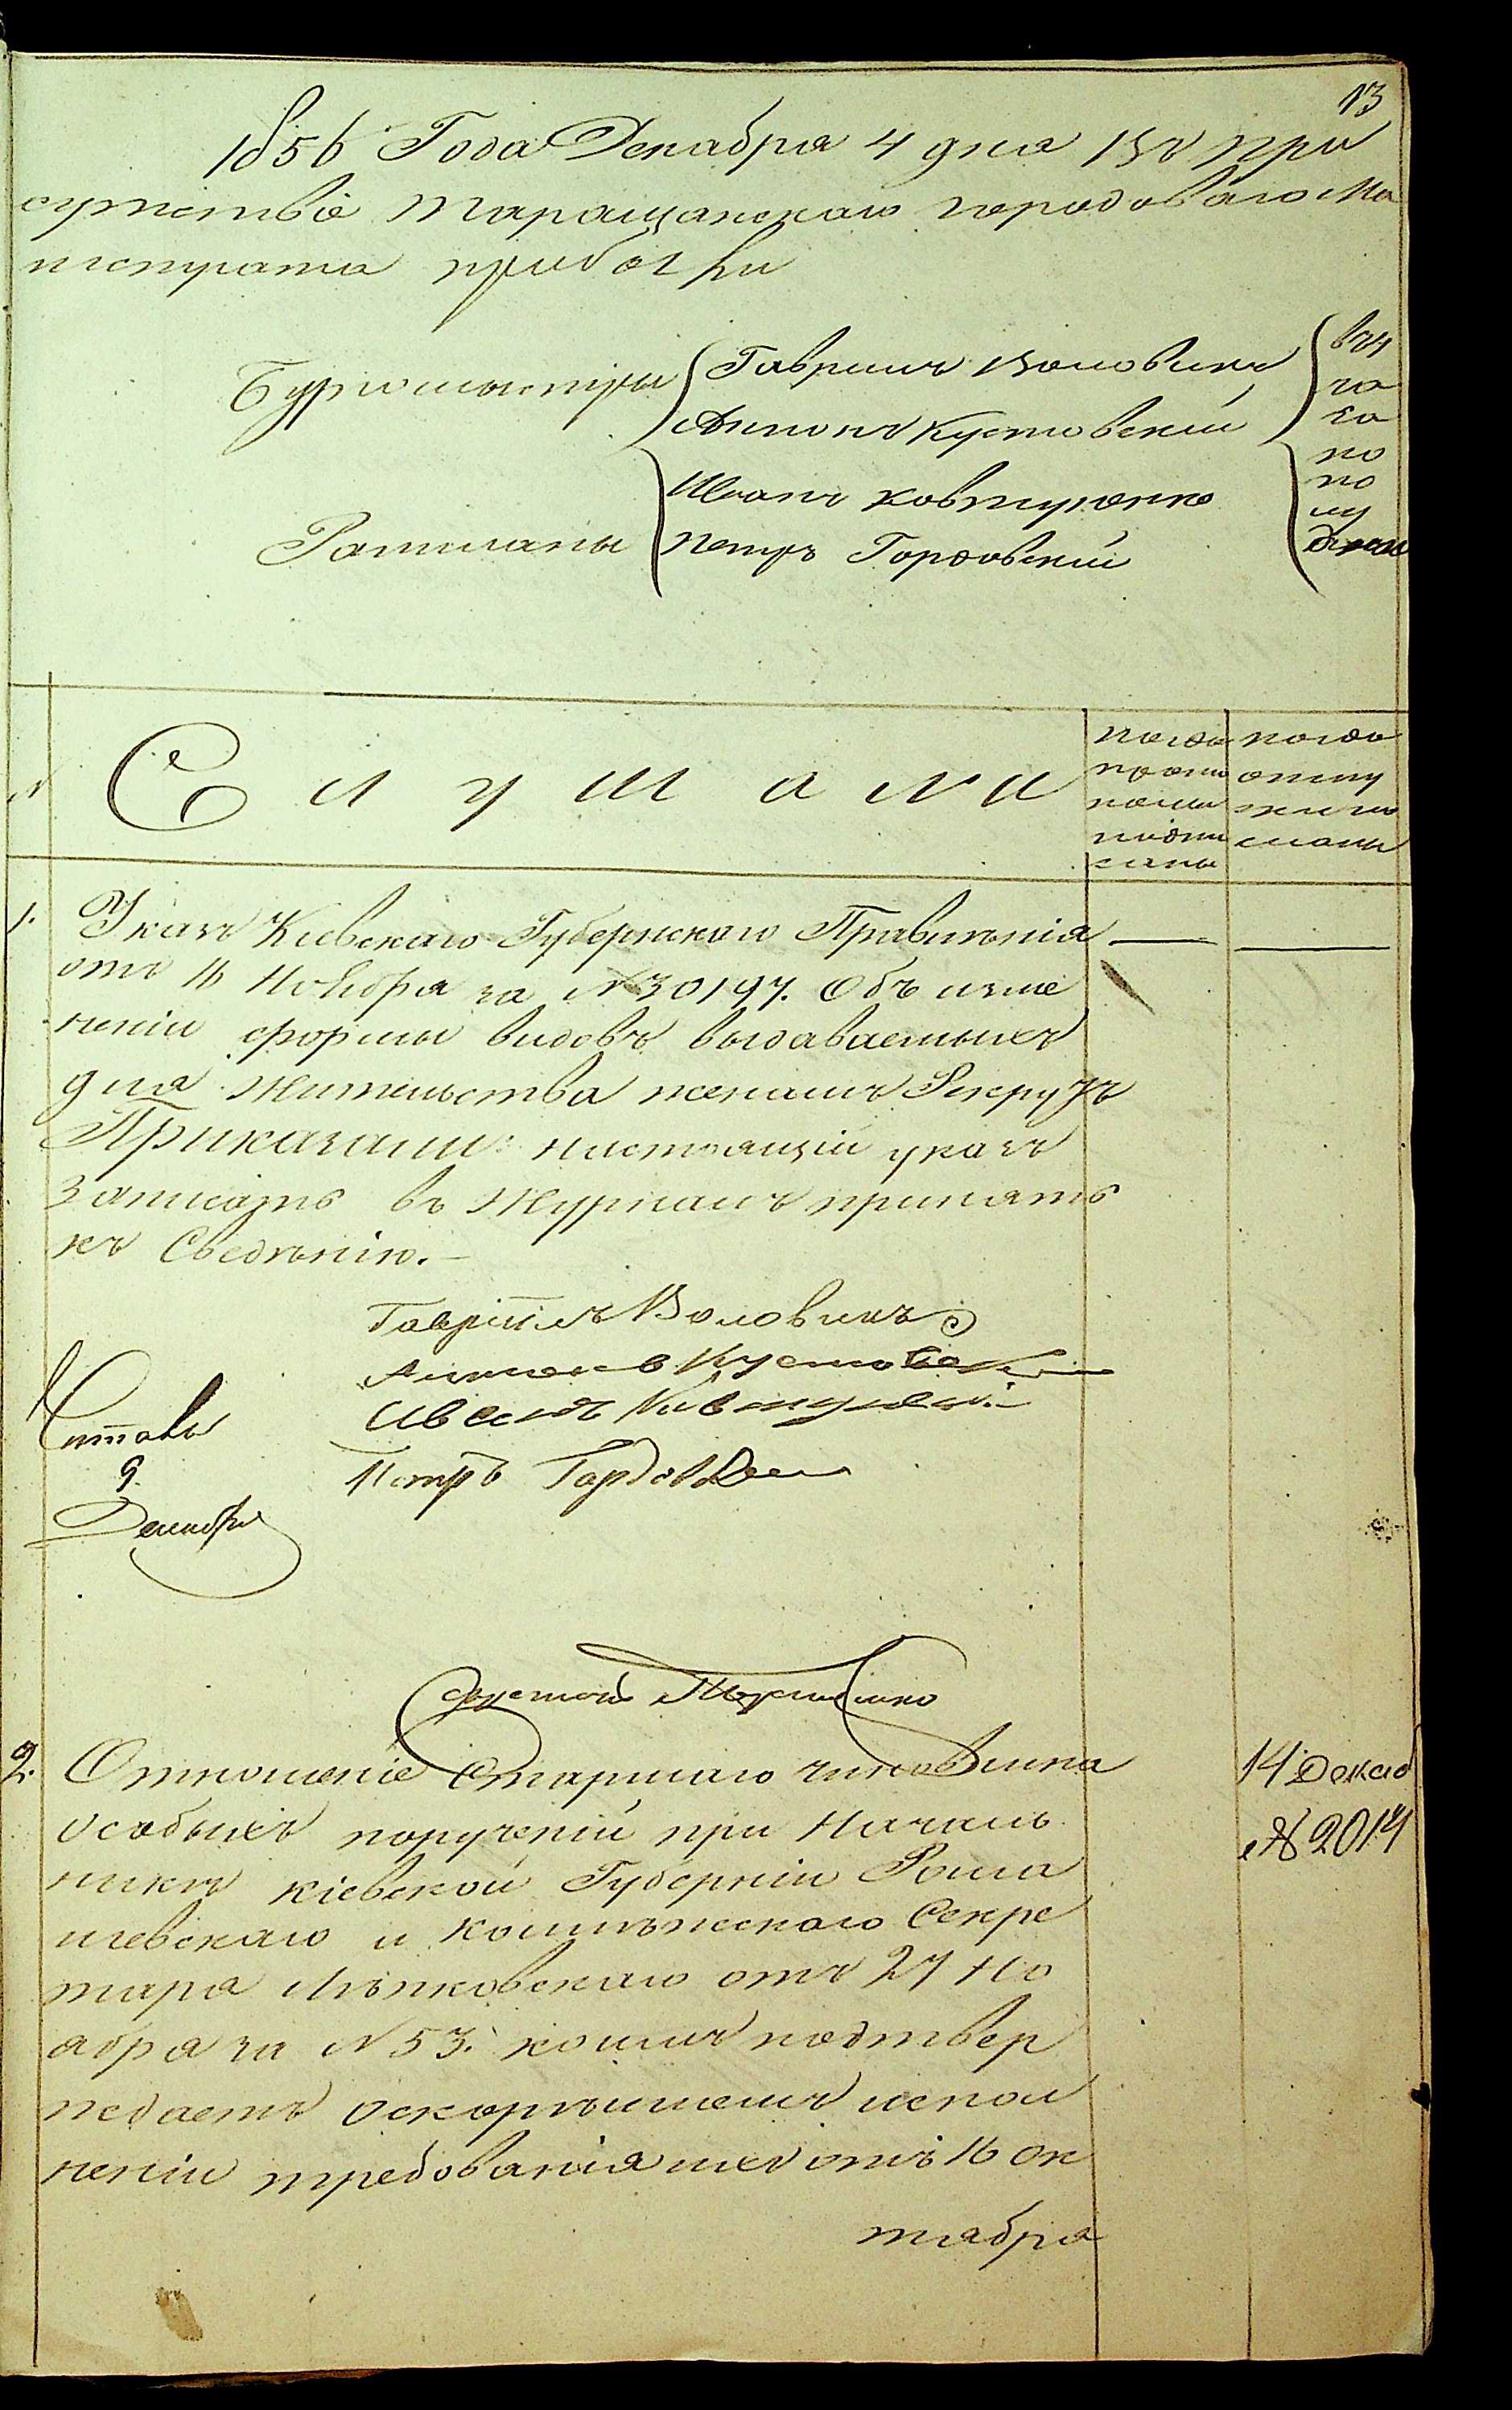 13
1856 Года Декабря 4 дня Въ при
сутствіе Таращанскаго городоваго Ма
гистрата прибыли
Бургомистры
Гавриилъ Воловикъ
Антонъ Кустовскій
Ратманы
Иванъ Ковтуненко
Петръ Гордовскій
въ 9
ча
са
по
по
лу
дни
№
Слушали
когда
прото
колы
подпи
саны
когда
отпу
жи
1. Указъ Кіевскаго Губернскаго Правленія
отъ 16 Ноября за № 30197. Объ изме
неніи формы видовъ выдаваемыхъ
для жительства женамъ Рекрутъ
Приказали: настоящій указъ
записать въ Журналъ принять
къ Сведѣнію.—
Гавріилъ Воловикъ
Антонъ Кустовскій
Иванъ Ковтуненко
Петръ Гордовскій
9
Декабря
Секретарь
2. Отношеніе Старшаго чиновника
особыхъ порученій при Началь
никѣ Кіевской Губерніи Рома
шевскаго и Коллежскаго Секре
таря отъ 27 Но
ября за № 53. коимъ подтвер
ждаетъ о скорѣйшемъ испол
неніи требованія его отъ 16 Ок
тября
14 Декаб
№ 2014